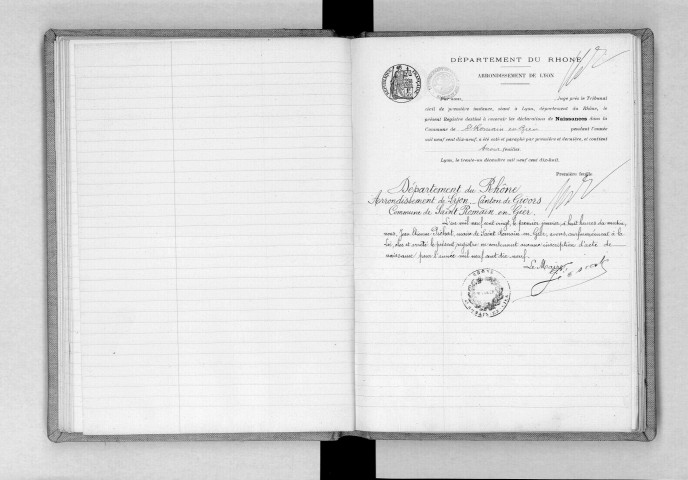 DÉPARTEMENT DU RHONE
ARRONDISSEMENT DE LYON
Par nous, Juge près le Tribunal
civil de première instance, séant à Lyon, département du Rhône, le
présent Registre destiné à contenir les déclarations de Naissances dans la
Commune de St Romain en Gier pendant l'année
mil neuf cent dix-neuf, a été coté et paraphé par première et dernière, et contient
feuillets.
Lyon, le trente-un décembre mil neuf cent dix-huit.
Première feuille
Département du Rhône
Arrondissement de Lyon _ Canton de Givors
Commune de Saint Romain en Gier.
L'an mil neuf cent vingt, le premier janvier, à huit heures du matin,
nous, Jean maire de Saint Romain en Gier, avons, conformément à la
loi, clos et arrêté le présent registre ne contenant aucune inscription d'acte de
naissance pour l'année mil neuf cent dix neuf.
Le Maire